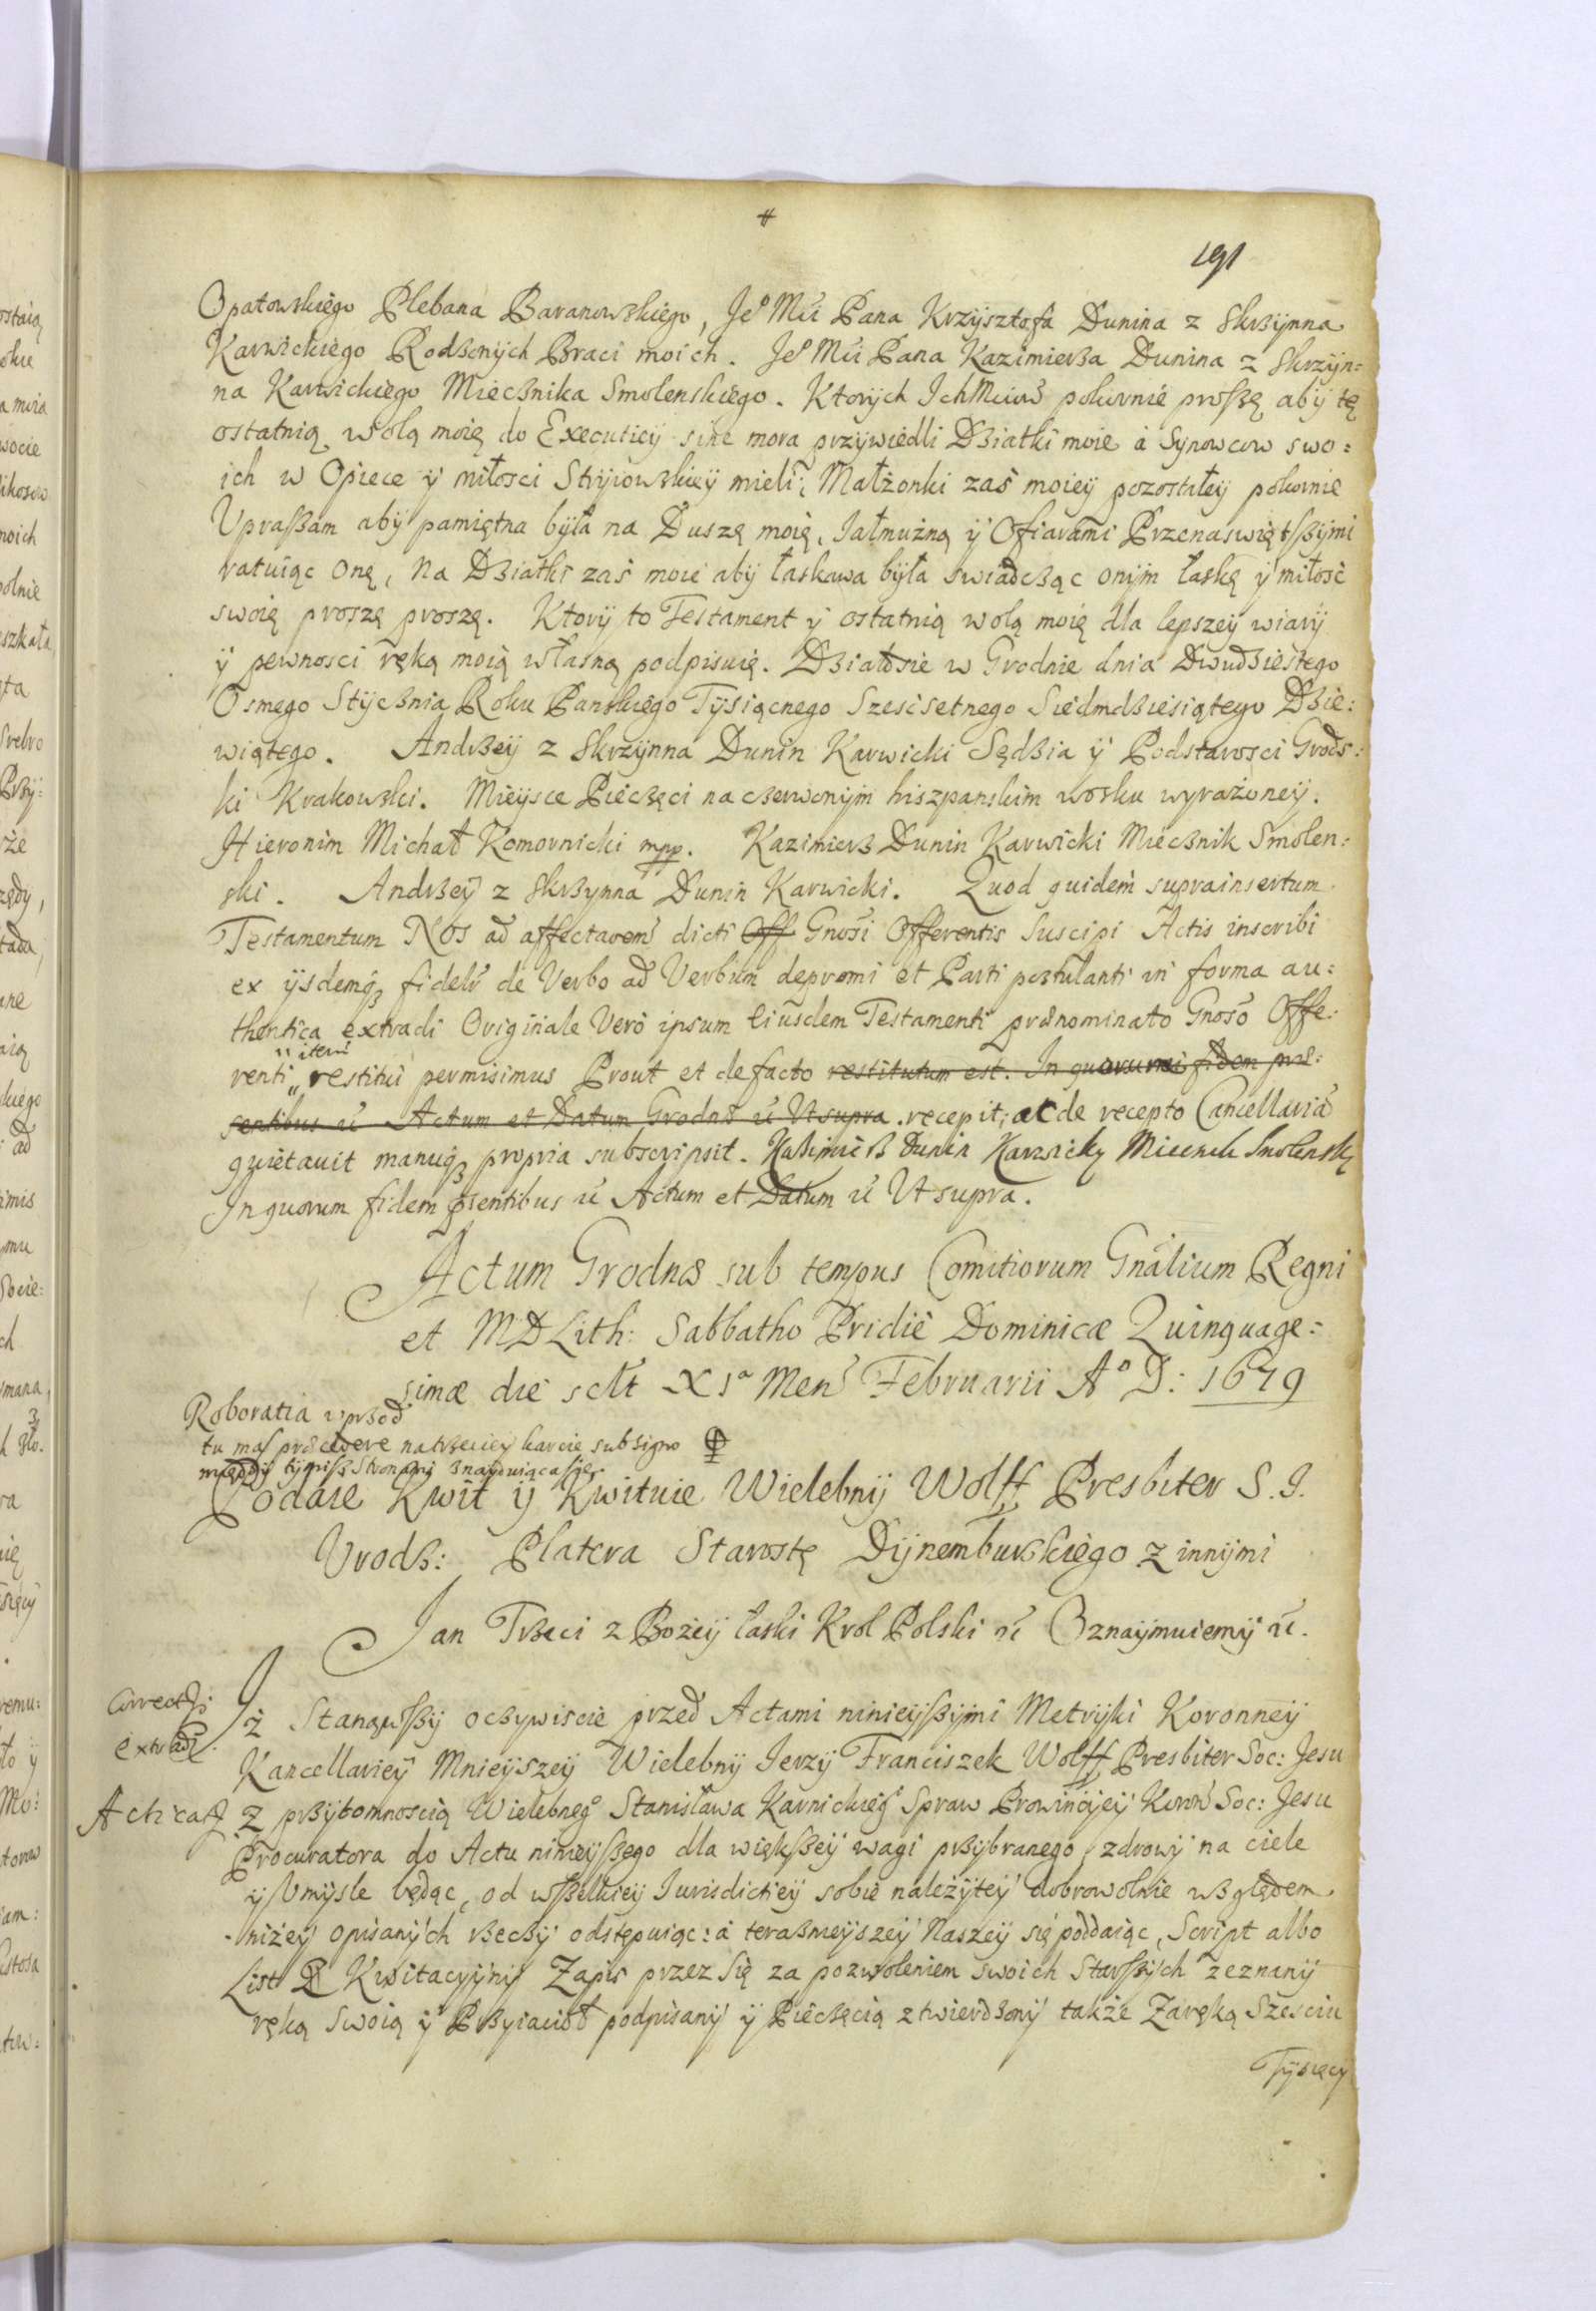 191
Opatowskiego Plebana Baranowskiego, Je⁰ Mći Pana Krzÿsztofa Dunina z Skrzÿnna
Karwickiego Rodzonÿch Braci moich. Je⁰ Mći Pana Kazimierza Dunina z Skrzÿn=
na Karwickiego Miecznika Smolenskiego. Ktorÿch IchMciow pokornie proszę abÿ tę
ostatnią wolą moię do Executieÿ sine mora przÿwiedli Dziatki moie a Sÿnowcow swo=
ich w Opiece ÿ miłosci Strÿiowskieÿ mieli, Małżonki zaś moieÿ pozostałeÿ pokornie
Upraszam abÿ pamiętna bÿła na Duszę moię, Jałmużną ÿ Ofiarami Przenaswiętszÿmi
ratuiąc onę, Na Dziatki zaś moie abÿ łaskawa bÿła swiadcząc onÿm łaskę ÿ miłość
swoię proszę proszę. Ktorÿ to Testament ÿ ostatnią wolą moię dla lepszeÿ wiarÿ
ÿ pewnosci ręką moią własną podpisuię. Działosie w Grodnie dnia Dwudziestego
Osmego Stÿcznia Roku Panskiego Tÿsiącnego Szescsetnego Siedmdziesiątego Dzie=
wiątego. Andrzeÿ z Skrzÿnna Dunin Karwicki Sędzia ÿ Podstarosci Grods=
ki Krakowski. Mieÿsce Pieczęci na czerwonÿm hiszpanskim wosku wyrażoneÿ.
Hieronim Michał Komornicki mpp. Kazimierz Dunin Karwicki Miecznik Smolen=
ski. Andrzeÿ z Skrzynna Dunin Karwicki. Quod quidem suprainsertum
Testamentum Nos ad affectaoem dicti Off Gnosi Offerentis Suscipi Actis inscribi
ex ÿsdemq₃ fideliter de Verbo ad Verbum depromi et Parti postulanti in forma au=
thentica extradi Originale Vero ipsum Eiusdem Testamenti prænominato Gnoso Offe=
item
renti restitui permisimus Prout et de facto restitutum est. In quorum fidem præ=
sentibus &c Actum et Datum Grodnæ &c Ut supra. recepit, et de recepto Cancellariã
quietauit manuq₃ propria subscripsit. Kazimierz Dunin Karwicky Miecnik Smolensky
In quorum fidem pñsentibus &c Actum et Datum &c Ut supra.
Actum Grodnæ sub tempus Comitiorum Gñalium Regni
et MDLith: Sabbatho Pridie Dominicæ Quinquage=
simæ die sclt XIa Mens Februarii A⁰ D: 1679
Roboratia vprzod
tu mas præcedere na trzeciey karcie sub signo
międzÿ tÿmisz Stronami znayduiąca się
Podaie Kwit ÿ Kwituie Wielebnÿ Wolff Presbiter S. J.
Urodz: Platera Starostę Dÿnemburskiego z innÿmi
Jan Trzeci z Bożeÿ łaski Krol Polski &c Oznaÿmuiemÿ &c.
Correct:
extrad.
Acticat
Iż Stanąwszÿ oczywiscie przed Actami ninieÿszÿmi Metrÿki Koronneÿ
Kancellarieÿ Mnieÿszeÿ Wielebnÿ Jerzÿ Franciszek Wolff Presbiter Soc: Jesu
z przÿtomnoscią Wielebneg⁰ Stanisława Karnickieg⁰ Spraw Prowincÿeÿ Koron Soc: Jesu
Procuratora do Actu ninieÿszego dla większeÿ wagi przÿbranego, zdrowÿ na ciele
ÿ Vmÿsle będąc, od wszelkieÿ Jurisdictieÿ sobie należÿteÿ dobrowolnie względem
niżeÿ opisanÿch rzeczÿ odstępuiąc: a terazmeÿszeÿ Naszeÿ się poddaiąc, Script albo
List Kwitacyÿnÿ Zapis przez się za pozwoleniem swoich Starszÿch zeznanÿ
ręką Swoią ÿ Przÿiacioł podpisanÿ ÿ Pieczęcią ztwierdzonÿ także Zaręką Szesciu
Tÿsięcy